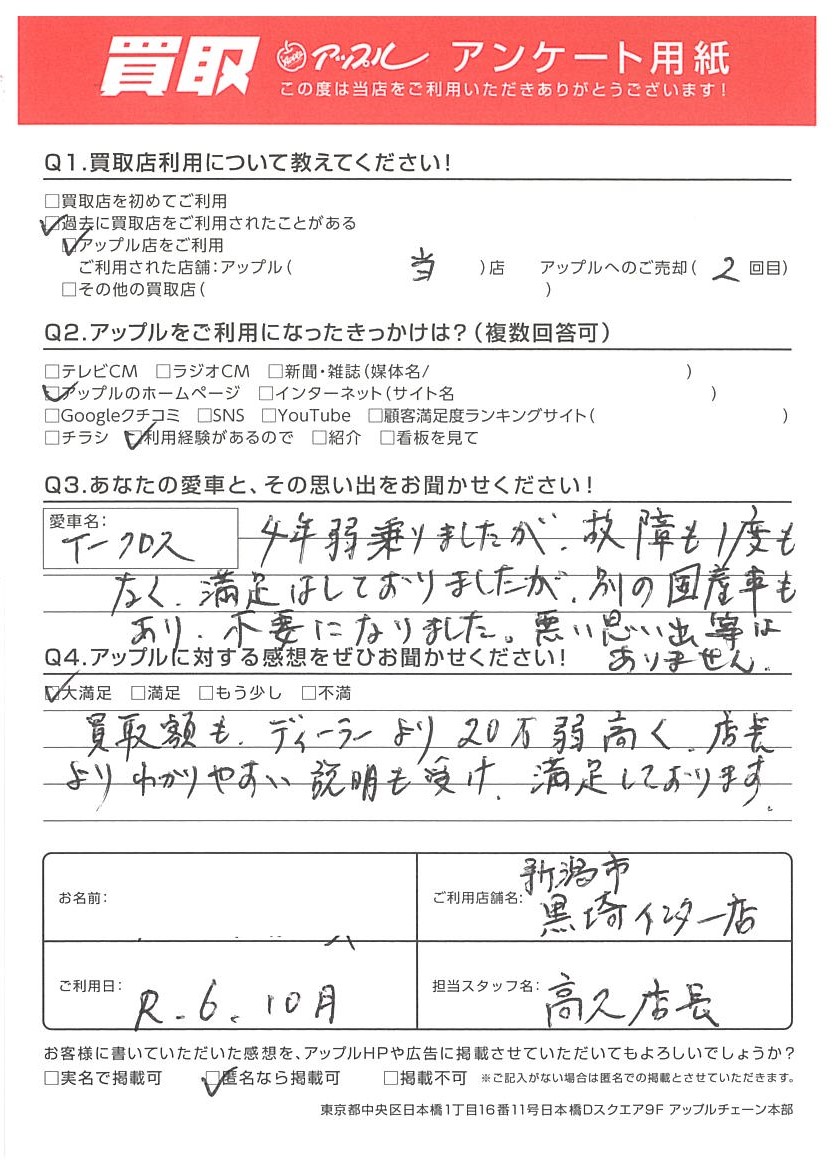 買取 アップル アンケート用紙
この度は当店をご利用いただきありがとうございます!
Q1.買取店利用について教えてください!
□買取店を初めてご利用
☑過去に買取店をご利用されたことがある
☑アップル店をご利用
ご利用された店舗:アップル( 当 )店 アップルへのご売却( 2 回目)
□その他の買取店( )
Q2.アップルをご利用になったきっかけは?(複数回答可)
□テレビCM □ラジオCM □新聞・雑誌(媒体名/ )
☑アップルのホームページ □インターネット(サイト名 )
□Googleクチコミ □SNS □YouTube □顧客満足度ランキングサイト( )
□チラシ ☑利用経験があるので □紹介 □看板を見て
Q3.あなたの愛車と、その思い出をお聞かせください!
愛車名:
イークロス 4年弱乗りましたが、故障も1度も
なく、満足はしておりましたが、別の国産車も
あり、不要になりました。悪い思い出等は
ありません。
Q4.アップルに対する感想をぜひお聞かせください!
☑大満足 □満足 □もう少し □不満
買取額も、ディーラーより20万弱高く、店長
よりわかりやすい説明も受け、満足しております。
お名前:
ご利用店舗名: 新潟市
黒埼インター店
ご利用日: R.6.10月
担当スタッフ名: 高久店長
お客様に書いていただいた感想を、アップルHPや広告に掲載させていただいてもよろしいでしょうか?
□実名で掲載可 ☑匿名なら掲載可 □掲載不可 ※ご記入がない場合は匿名での掲載とさせていただきます。
東京都中央区日本橋1丁目16番11号日本橋Dスクエア9F アップルチェーン本部